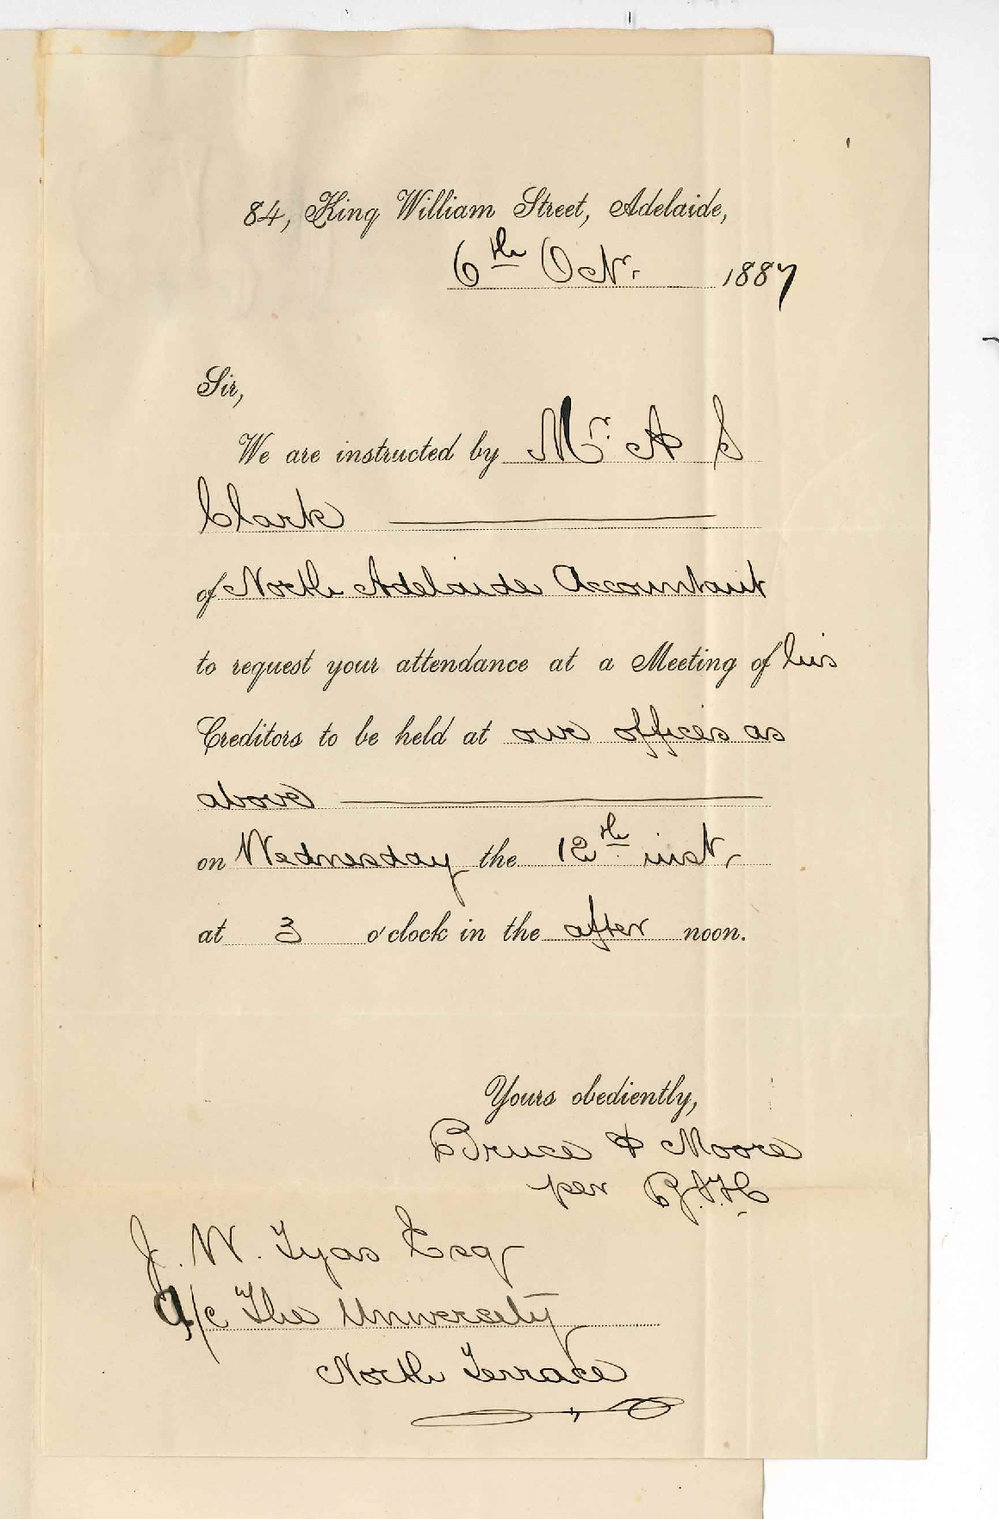 84, King William Street, Adelaide,
6th Oct. 1887
Sir,
We are instructed by Mr. A S
Clark
of North Adelaide Accountant
to request your attendance at a Meeting of his
Creditors to be held at our offices as
above
on Wednesday the 12th inst,
at 3 o'clock in the after noon.
Yours obediently,
Bruce & Moore
per
J. W. Tyas Esq
a/c The University
North Terrace